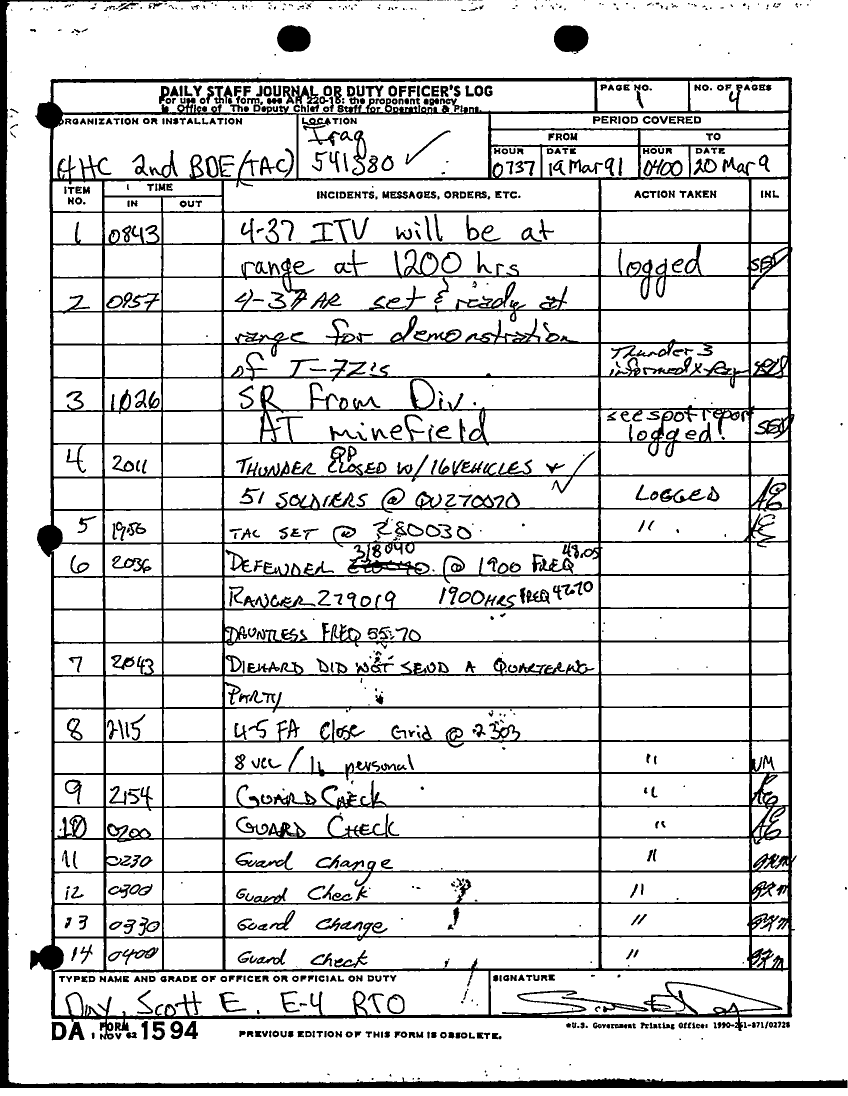 DAILY STAFF JOURNAL OR DUTY OFFICER'S LOG
For use of this form, see AR 220-15; the proponent agency
is Office of The Deputy Chief of Staff for Operations & Plans.
PAGE NO.
1
NO. OF PAGES
4
ORGANIZATION OR INSTALLATION
HHC 2nd BDE (TAC)
LOCATION
Iraq
541380
PERIOD COVERED
FROM
TO
HOUR DATE HOUR DATE
0737 19 Mar 91 0400 20 Mar 9
ITEM NO. TIME IN OUT INCIDENTS, MESSAGES, ORDERS, ETC. ACTION TAKEN INL
1 0843 4-37 ITV will be at
range at 1200 hrs logged SED
2 0957 4-37 AR set & ready at
range for demonstration
of T-72's Thunder 3
informed X-Ray
3 1026 SR From Div.
AT minefield see spot report
logged! SED
4 2011 THUNDER CLOSED W/ 16 VEHICLES
51 SOLDIERS @ QU270070 LOGGED
5 1956 TAC SET @ 280030 "
6 2036 DEFENDER 318040 @ 1900 FREQ 48.05
RANGER 279019 1900HRS FREQ 47.70
DAUNTLESS FREQ 55.70
7 2043 DIEHARD DID NOT SEND A QUARTERING
PARTY
8 2115 4-5 FA Close Grid @ 2303
8 vec / 16 personal " NM
9 2154 GUARD CHECK "
10 0200 GUARD CHECK "
11 0230 Guard Change "
12 0300 Guard Check "
13 0330 Guard Change "
14 0400 Guard Check "
TYPED NAME AND GRADE OF OFFICER OR OFFICIAL ON DUTY
Day, Scott E. E-4 RTO
SIGNATURE
DA FORM 1 NOV 62 1594
PREVIOUS EDITION OF THIS FORM IS OBSOLETE.
*U.S. Government Printing Office: 1990-261-871/02728